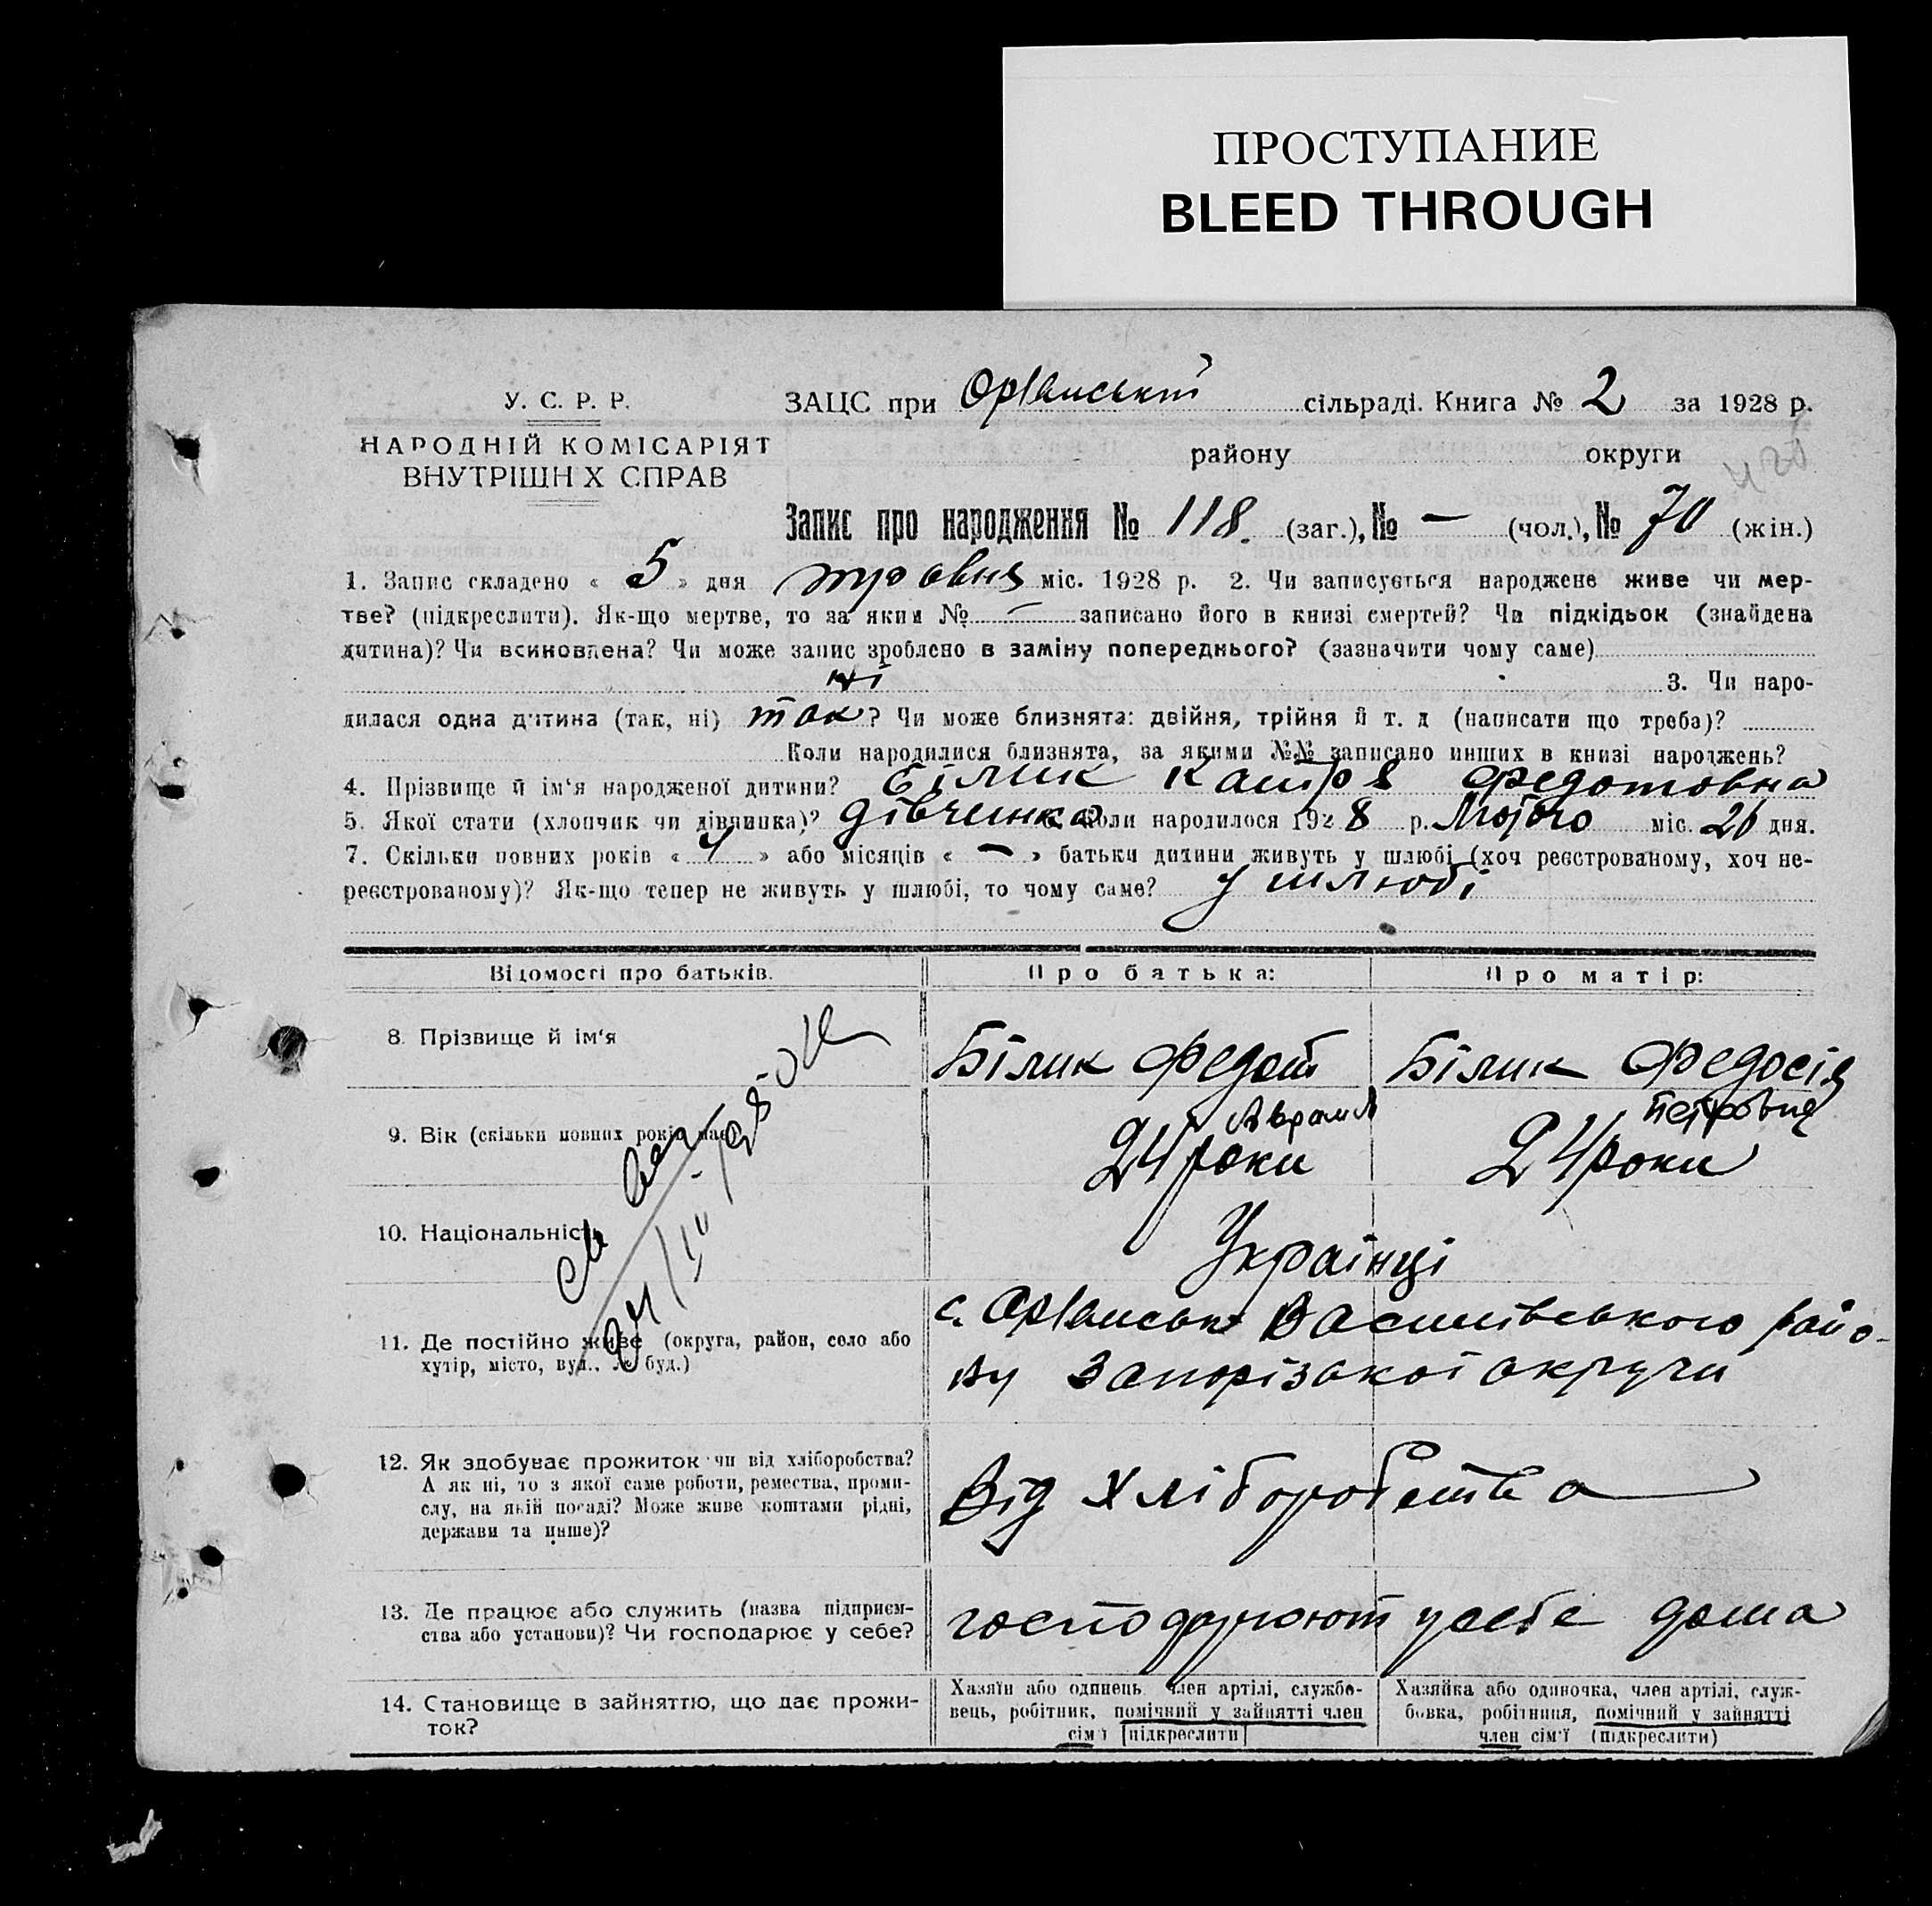 ПРОСТУПАНИЕ
BLEED THROUGH
У. С. Р. Р.
НАРОДНІЙ КОМІСАРІЯТ
ВНУТРІШН Х СПРАВ
ЗАЦС при Оріанській сільраді. Книга № 2 за 1928 р.
району округи
Запис про народження № 118. (заг.), № — (чол.), № 70 (жін.)
1. Запис складено « 5 » дня травня міс. 1928 р. 2. Чи записується народжене живе чи мер-
тве? (підкреслити). Як-що мертве, то за яким № — записано його в книзі смертей? Чи підкідьок (знайдена
дитина)? Чи всиновлена? Чи може запис зроблено в заміну попереднього? (зазначити чому саме)
ні 3. Чи наро-
дилася одна дитина (так, ні) так? Чи може близнята: двійня, трійня й т. д (написати що треба)?
Коли народилися близнята, за якими №№ записано инших в книзі народжень?
4. Прізвище й ім'я народженої дитини? Білик Катря Федотовна
5. Якої стати (хлопчик чи дівчинка)? дівчинка 6. Коли народилося 1928 р. Лютого міс. 26 дня.
7. Скільки повних років « 4 » або місяців « — » батьки дитини живуть у шлюбі (хоч реєстрованому, хоч не-
реєстрованому)? Як-що тепер не живуть у шлюбі, то чому саме? у шлюбі
Відомості про батьків. Про батька: Про матір:
8. Прізвище й ім'я Білик Федот Білик Федосія
Аврамів Петровна
9. Вік (скільки повних років має) 24 роки 24 роки
10. Національність Українці
11. Де постійно живе (округа, район, село або
хутір, місто, вул., № буд.)
с. Оріанськ Василівського райо-
ну Запорізької округи
12. Як здобуває прожиток чи від хліборобства?
А як ні, то з якої саме роботи, ремества, проми-
слу, на якій посаді? Може живе коштами рідні,
держави та инше)?
Від хліборобства
13. Де працює або служить (назва підприєм-
ства або установи)? Чи господарює у себе?
господарюют у себе дома
14. Становище в зайняттю, що дає прожи-
ток?
Хазяїн або одинець член артілі, службо-
вець, робітник, помічний у зайнятті член
сім'ї (підкреслити)
Хазяйка або одиночка, член артілі, служ-
бовка, робітниця, помічний у зайнятті
член сім'ї (підкреслити)